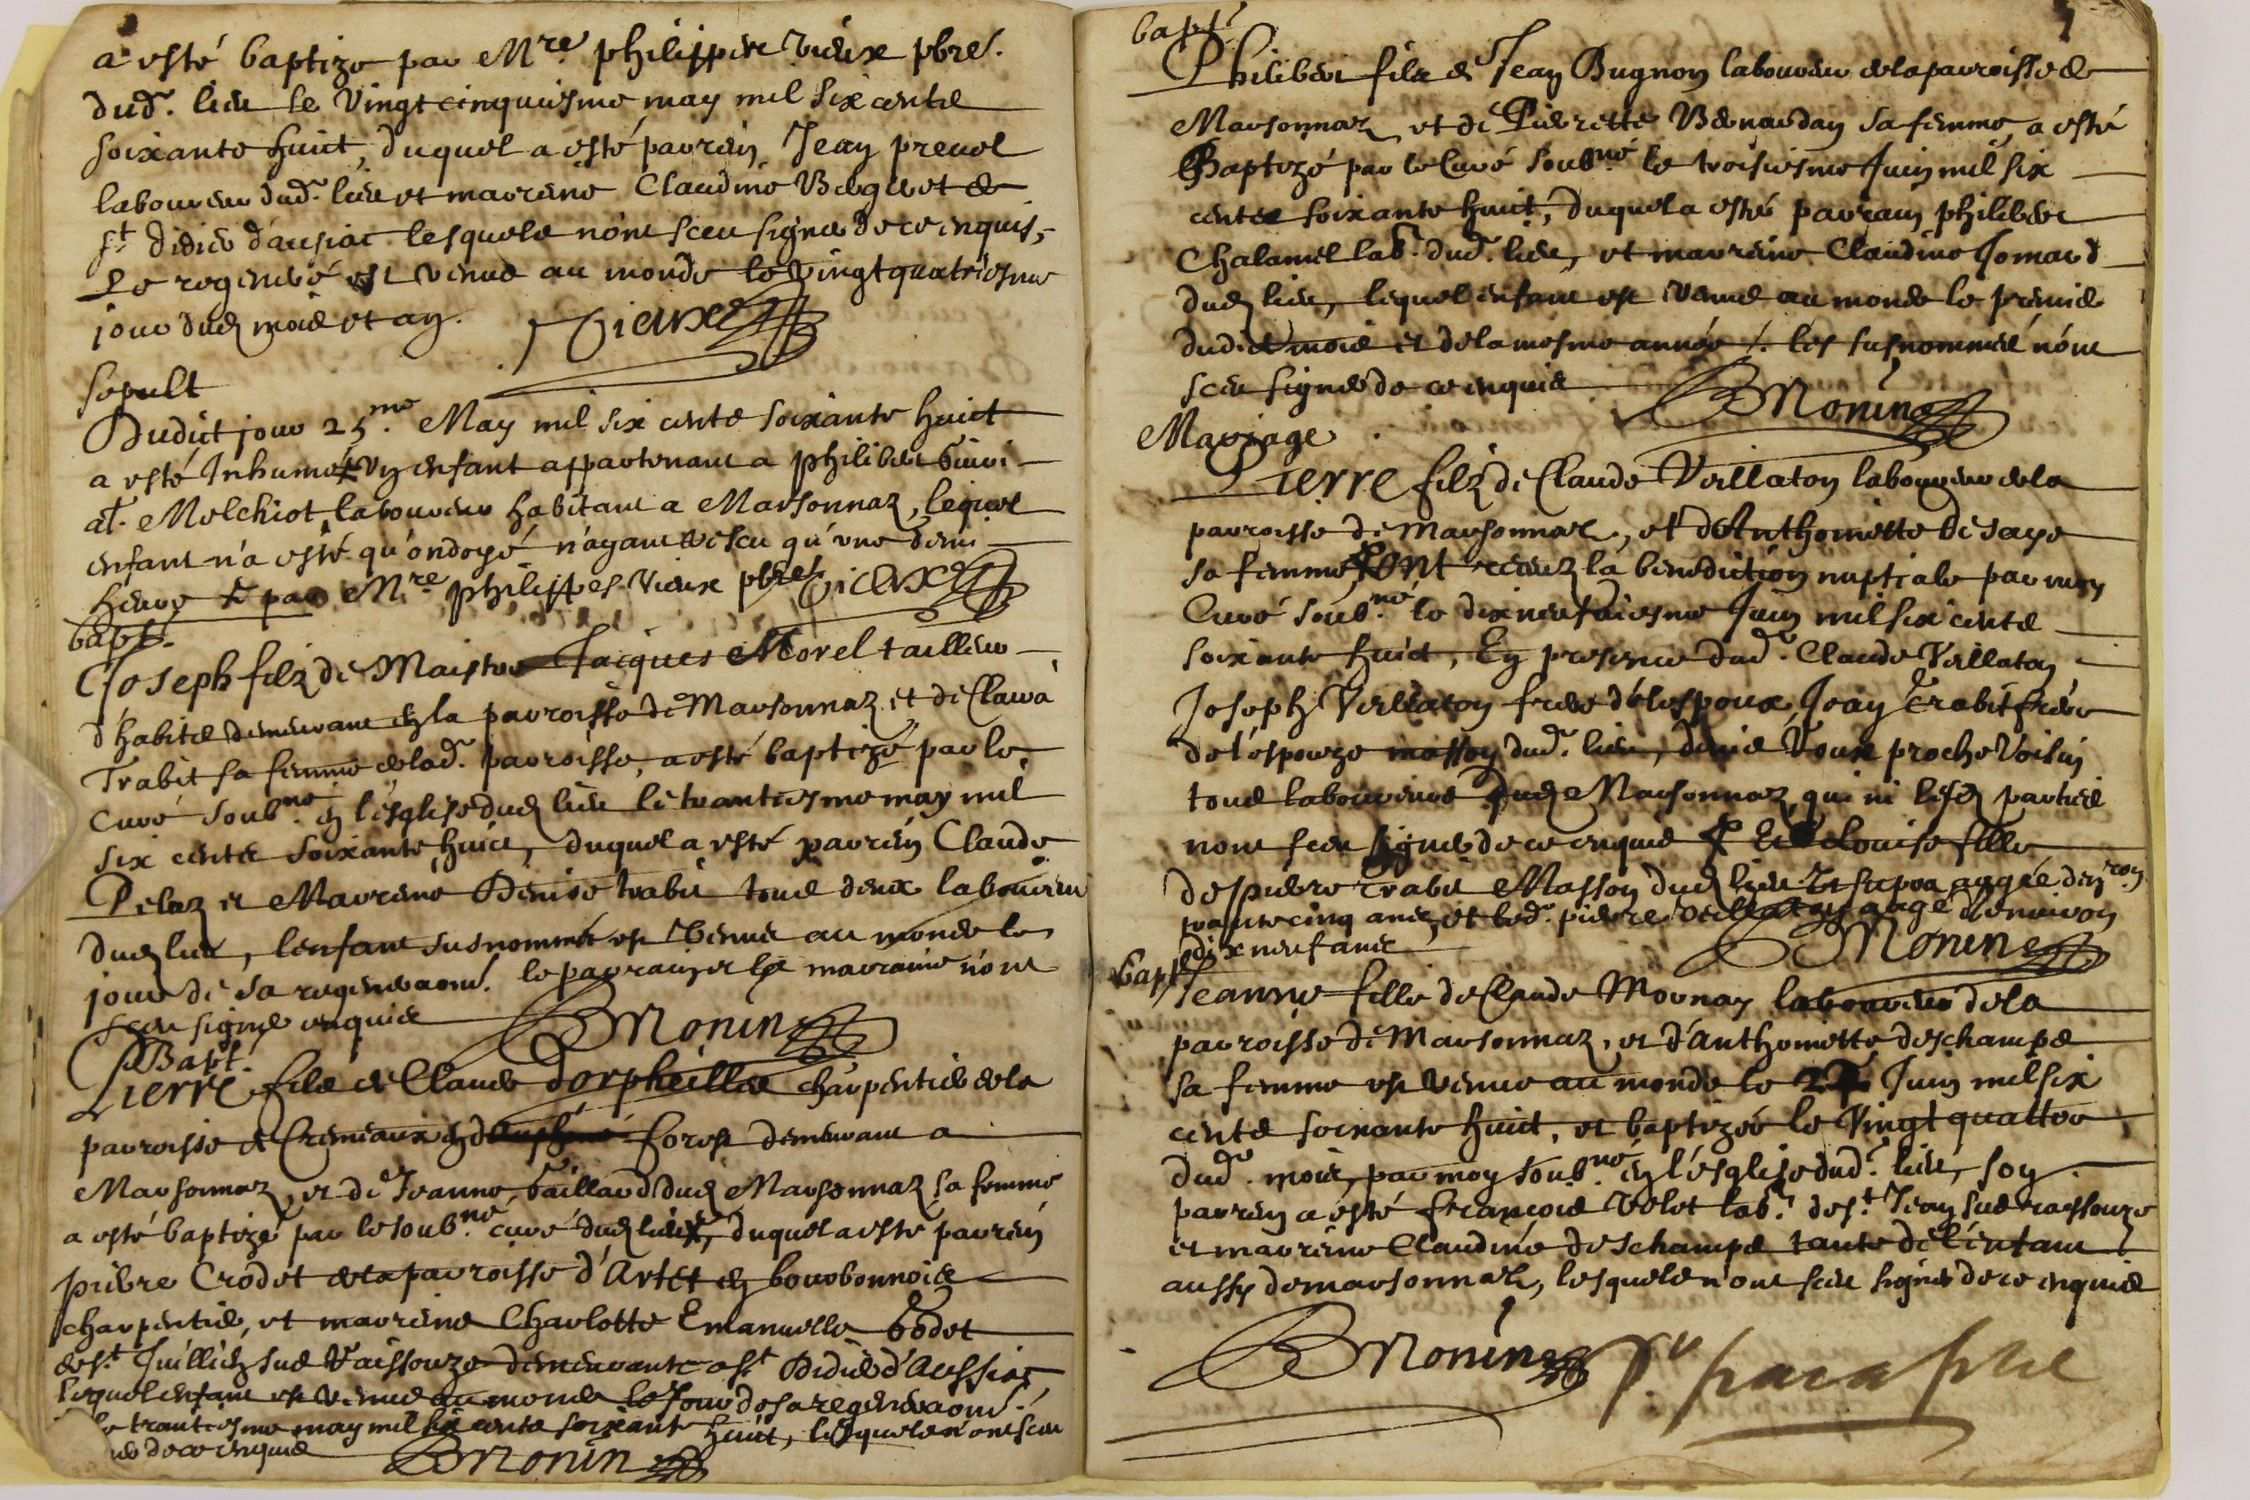 a esté baptize par Mre philippes vieux pbre.
dud. lieu le vingtcinquiesme may mil six cents
soixante huict, duquel a esté parrein Jean prevel
laboureur dud. lieu et marreine Claudine de
st didier d'aussiac lesquels n'ont sceu signer de ce enquis,
Le regeneré est venus au monde le vingtquatriesme
jour dud mois et an. Vieux
sepult
Dudict jour 25.me May mil six cents soixante huict
a esté Inhumé un enfant appartenant a philibert
at. Melchiot laboureur habitant a Marsonnaz, lequel
enfant n'a esté qu'ondoyé n'ayant vescu qu'une demi
heure & par Mre philippes vieux pbre Vieux
bapt.
Joseph filz de Maistre Jacques Morel tailleur
d'habits demeurant en la parroisse de Marsonnaz et de Clauda
Trabit sa femme de lad. parroisse, a esté baptizé par le
Curé soub.né en l'esglise dud lieu le trantiesme may mil
six cents soixante huict, duquel a esté parrein Claude
Pelaz et Marreine Denise trabit tous deux laboureurs
dud lieu, lenfant susnommé est venus au monde le
jour de sa regeneraon. le parrain et la marraine n'ont
sceu signer enquis BMonin
Bapt.
Pierre fils de Claude dorpheilles charpentier de la
parroisse de Cremeaux en forest demeurant a
Marsonnaz, et de Jeanne baillard dud Marsonnaz sa femme
a esté baptizé par le soub.né curé dud lieu, duquel a esté parrein
pierre Crodet de la parroisse d'Artet en bourbonnois
charpentier, et marreine Charlotte Emanuelle bodet
de st. Juillien sus Raissouze demeurante a st Didier d'Aussiac
lequel enfant est venus au monde le jour de sa regeneraon.
le trantiesme may mil six cents soixante huict, lesquels n'ont sceu
de ce enquis BMonin
bapt.
Philibert fils de Jean Bugnon laboureur de la parroisse de
Marsonnaz et de Pierrette Bernardan sa femme, a esté
Baptizé par le Curé soub.né le troisiesme Juin mil six
cents soixante huict, duquel a esté parrain philibert
Chalamel lab. dud. lieu, et marreine Claudine Jomard
dud lieu, lequel enfant est venus au monde le premier
dudict mois et de la mesme année /. les susnommés n'ont
sceu signer de ce enquis BMonin
Mariage
Pierre filz de Claude Veillaton laboureur de la
parroisse de Marsonnaz, et d'Anthoinette de saye
sa femme, ont receuz la benediction nuptiale par moy
Curé soub.né le dix neufviesme Juin mil six cents
soixante huict, En presence dud. Claude Veillaton
Joseph Veillaton frere de lespoux, Jean trabit frere
de l'espouze masson dud. lieu, denis Voux proche voisin
tous laboureurs dud Marsonnaz, qui ni lesd parties
n'ont sceu signer de ce enquis & Et Louise fille
de pierre trabit Masson dud lieu aagée denvron
trante cinq ans, et led. pierre Veillaton aagé d'environ
dix neuf ans BMonin
bapt.
Jeanne fille de Claude Mornay laboureur de la
parroisse de Marsonnaz, et d'Anthoinette deschamps
sa femme est venue au monde le Juin mil six
cents soixante huict, et baptizée le vingt quattre
dud. mois, par moy soub.né en l'esglise dud. lieu, son
parrein a esté françois Velet lab.r de st. Jean sus raissouze
et marreine Claudine deschamps tante de l'enfant
aussy de marsonnaz, lesquels n'ont sceu signer de ce enquis
BMonin paraphé